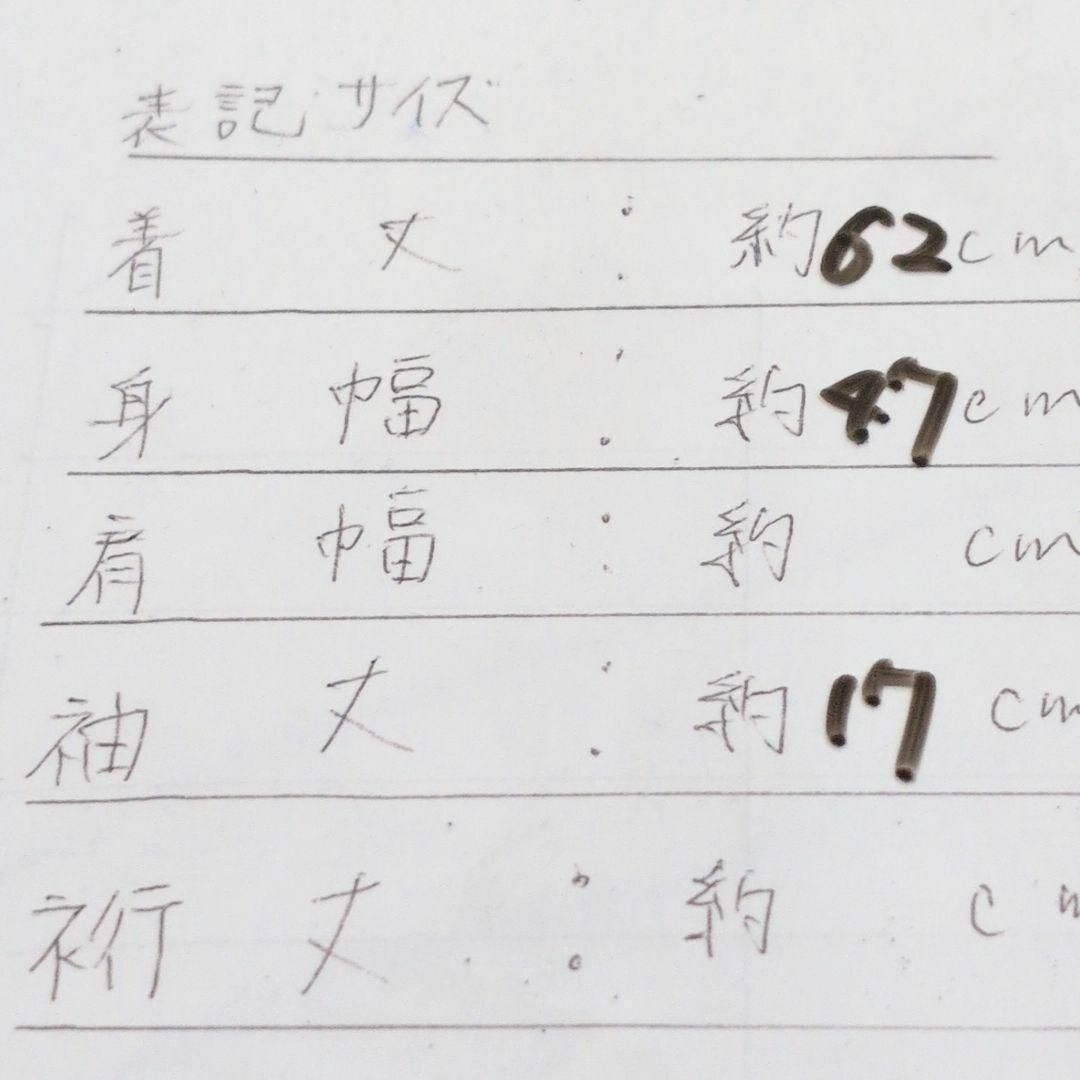 表記サイズ
着丈：約62cm
身幅：約47cm
肩幅：約 cm
袖丈：約17cm
裄丈：約 cm